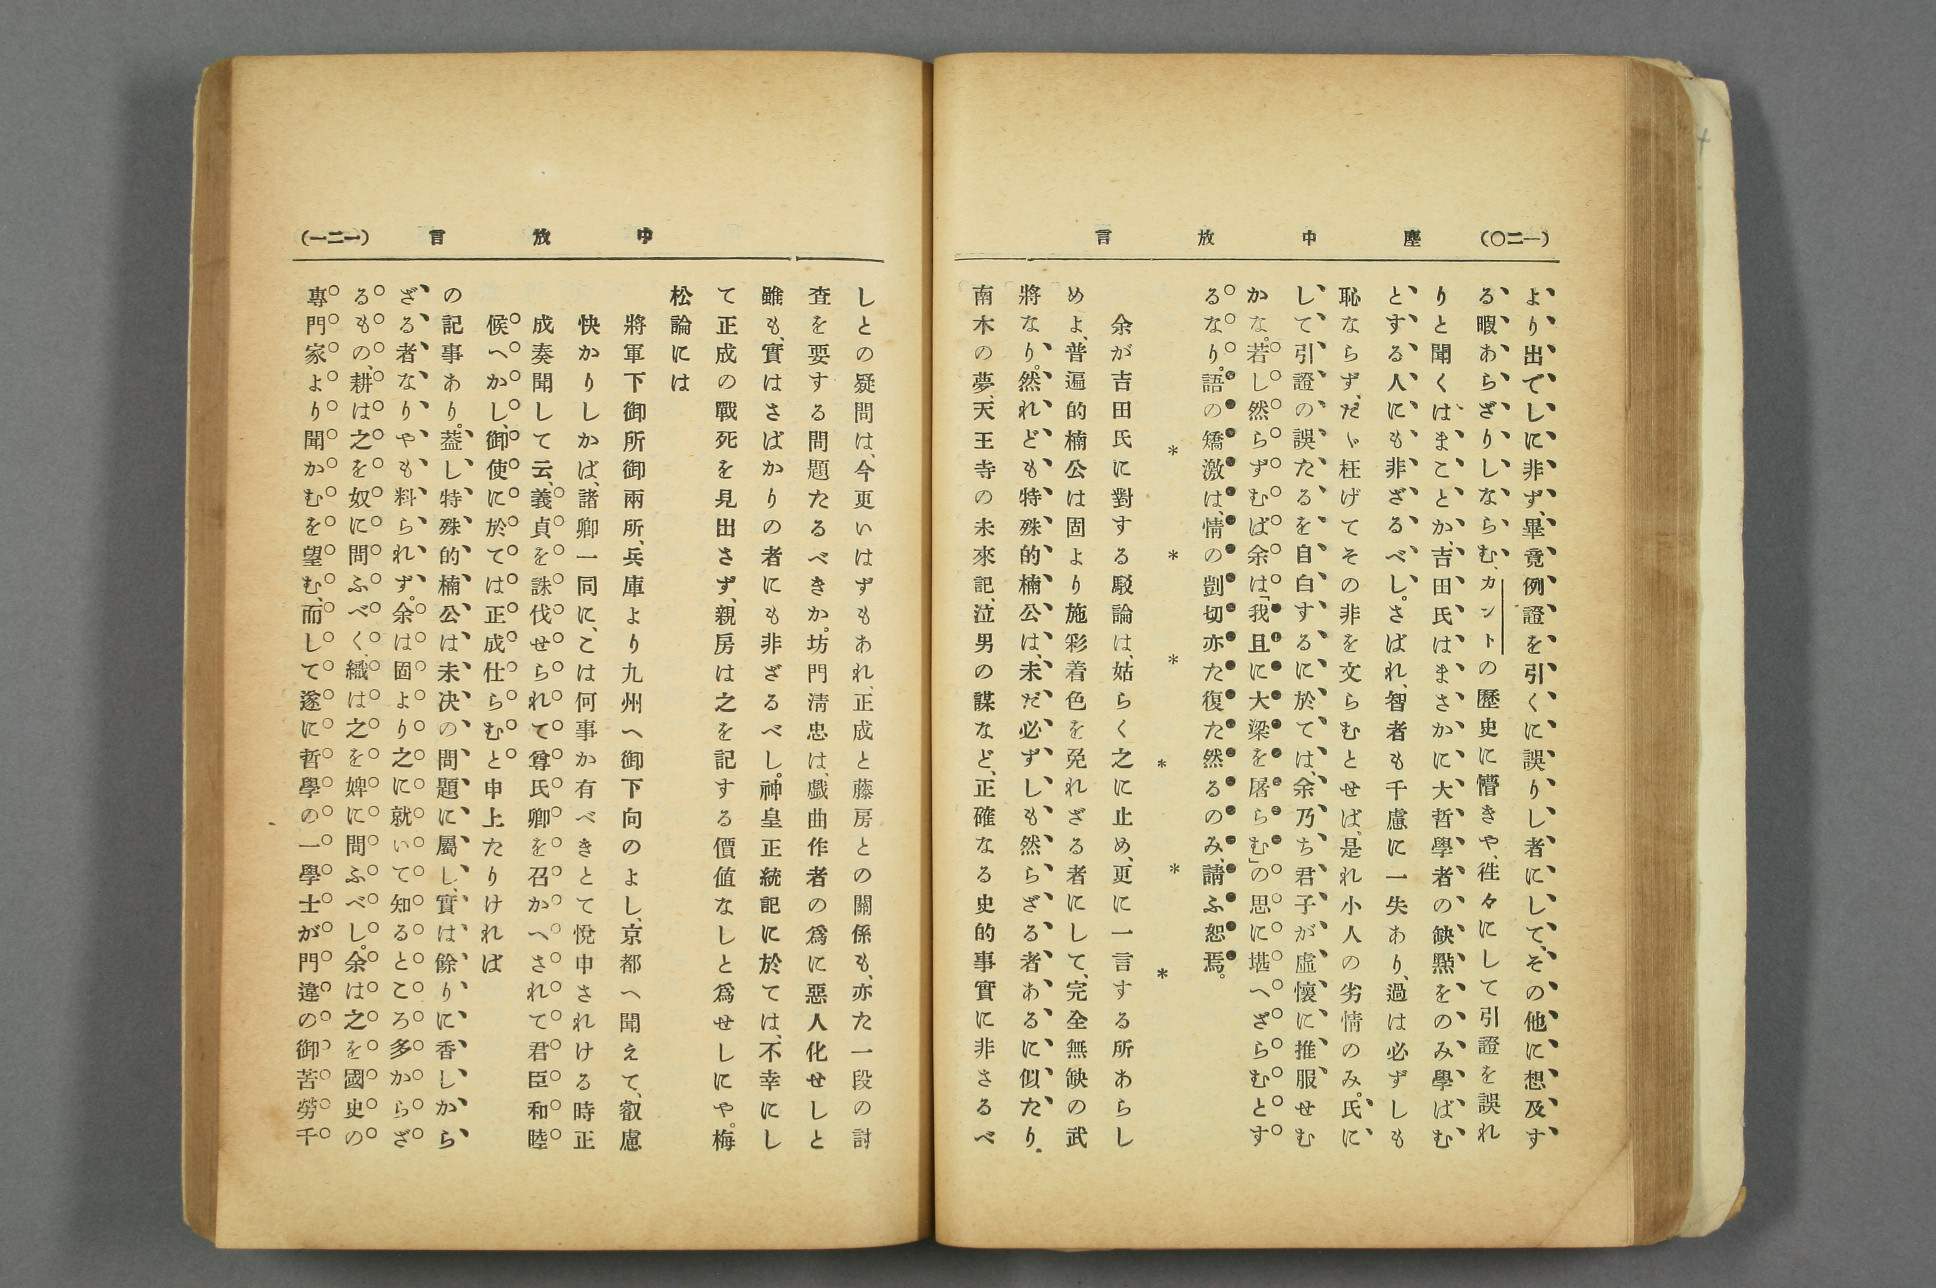 (一二〇)
塵中放言
より出でしに非ず、畢竟例證を引くに誤りし者にして、その他に想及す
る暇あらざりしならむ、カントの歴史に懵きや、徃々にして引證を誤れ
りと聞くはまことか、吉田氏はまさかに大哲學者の缺點をのみ學ばむ
とする人にも非ざるべし。さばれ、智者も千慮に一失あり、過は必ずしも
恥ならず、だゞ枉げてその非を文らむとせば、是れ小人の劣情のみ。氏に
して引證の誤たるを自白するに於ては、余乃ち君子が虛懷に推服せむ
かな。若し然らずむば余は「我且に大梁を屠らむ」の思に堪へざらむとす
るなり。語の矯激は、情の剴切亦た復た然るのみ、請ふ恕焉。
＊＊＊＊＊＊
余が吉田氏に對する駁論は、姑らく之に止め、更に一言する所あらし
めよ、普遍的楠公は固より施彩着色を免れざる者にして、完全無缺の武
將なり。然れども特殊的楠公は、未だ必ずしも然らざる者あるに似たり。
南木の夢、天王寺の未來記、泣男の謀など、正確なる史的事實に非さるべ
中放言
(一二一)
しとの疑問は、今更いはずもあれ、正成と藤房との關係も、亦た一段の討
査を要する問題たるべきか。坊門淸忠は、戯曲作者の爲に惡人化せしと
雖も、實はさばかりの者にも非ざるべし。神皇正統記に於ては、不幸にし
て正成の戰死を見出さず、親房は之を記する價値なしと爲せしにや。梅
松論には
將軍下御所御兩所、兵庫より九州へ御下向のよし、京都へ聞えて、叡慮
快かりしかば、諸卿一同に、こは何事か有べきとて悅申されける時正
成奏聞して云、義貞を誅伐せられて尊氏卿を召かへされて君臣和睦
候へかし、御使に於ては正成仕らむと申上たりければ
の記事あり。葢し特殊的楠公は未决の問題に屬し、實は餘りに香しから
ざる者なりやも料られず。余は固より之に就いて知るところ多からざ
るもの、耕は之を奴に問ふべく、織は之を婢に問ふべし。余は之を國史の
專門家より聞かむを望む、而して遂に哲學の一學士が門違の御苦勞千